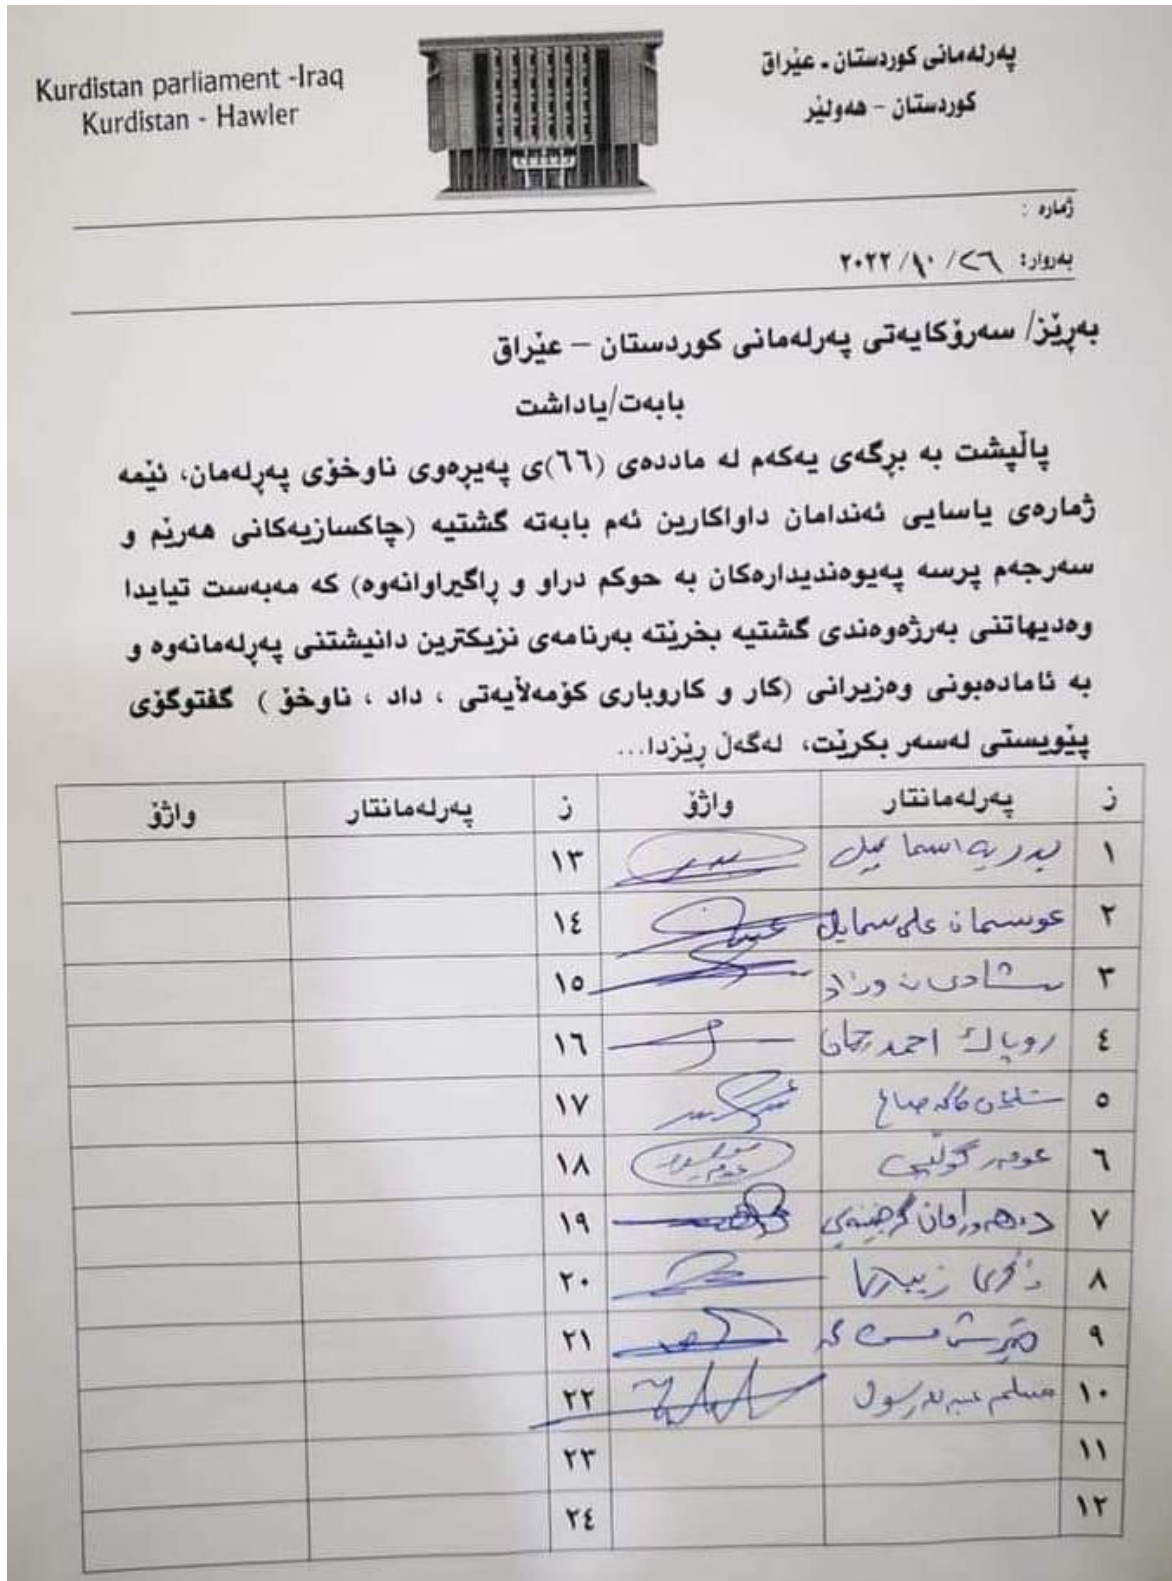 Kurdistan parliament -Iraq
Kurdistan - Hawler
پەرلەمانی کوردستان - عێراق
کوردستان - هەولێر
ژمارە :
بەروار: ٢٦/ ١٠/ ٢٠٢٢
بەڕێز/ سەرۆکایەتی پەرلەمانی کوردستان – عێراق
بابەت/یاداشت
پاڵپشت بە بڕگەی یەکەم لە ماددەی (٦٦)ی پەیڕەوی ناوخۆی پەڕلەمان، ئێمە
ژمارەی یاسایی ئەندامان داواکارین ئەم بابەتە گشتیە (چاکسازیەکانی هەرێم و
سەرجەم پرسە پەیوەندیدارەکان بە حوکم دراو و ڕاگیراوانەوە) کە مەبەست تیایدا
وەدیهاتنی بەرژەوەندی گشتیە بخرێتە بەرنامەی نزیکترین دانیشتنی پەڕلەمانەوە و
بە ئامادەبونی وەزیرانی (کار و کاروباری کۆمەڵایەتی ، داد ، ناوخۆ ) گفتوگۆی
پێویستی لەسەر بکرێت، لەگەڵ ڕێزدا...
ز پەرلەمانتار واژۆ ز پەرلەمانتار واژۆ
١ بدریە اسماعیل ١٣
٢ عوسمان علی سمایل ١٤
٣ شادی نوزاد ١٥
٤ روپاك احمد رحمان ١٦
٥ کاکە صالح ١٧
٦ عومەر گوڵپی ١٨
٧ د.هەورامان ١٩
٨ زیباری ٢٠
٩ ٢١
١٠ مسلم عبداللە رسول ٢٢
١١ ٢٣
١٢ ٢٤